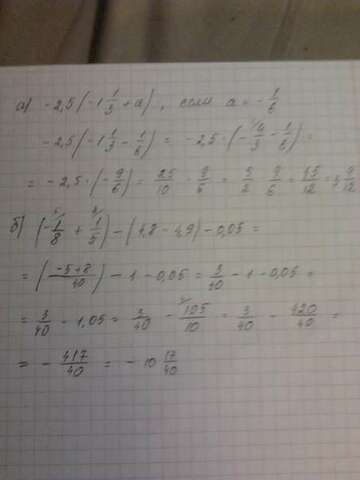 а) -2,5(-1 1/3 + a), если a = -1/6
-2,5(-1 1/3 - 1/6) = -2,5·(-4/3 - 1/6) =
= -2,5·(-9/6) = 25/10 · 9/6 = 5/2 · 9/6 = 45/12 = 3 9/12
б) (-1/8 + 1/5) - (4,8 - 4,9) - 0,05 =
= (-5+8/40) - 1 - 0,05 = 3/40 - 1 - 0,05 =
= 3/40 - 1,05 = 3/40 - 105/10 = 3/40 - 420/40 =
= - 417/40 = - 10 17/40